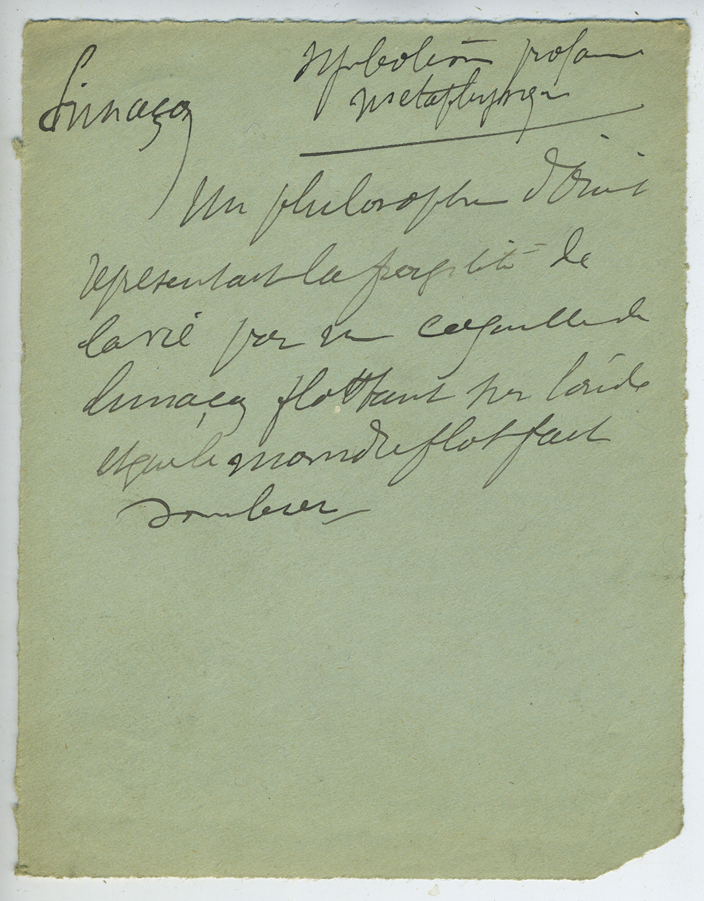 Limaçon
Symbolisme profane
Métaphysique
Un philosophe d'Orient
representait la fragilité de
la vie par une coquille de
limaçon flottant sur l'onde
et que le moindre flot fait
sombrer